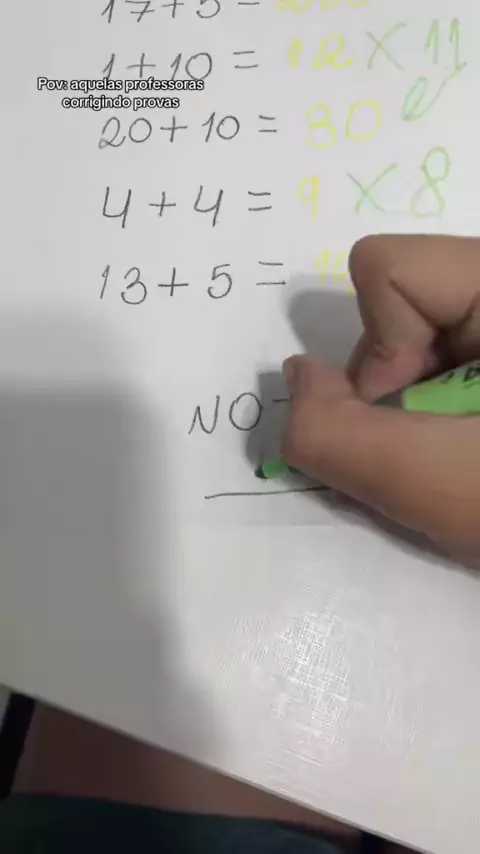 17+5=
1+10 = 12 X 11
Pov: aquelas professoras
corrigindo provas
20+10 = 30
4+4 = 9 X 8
13+5 =
NOT